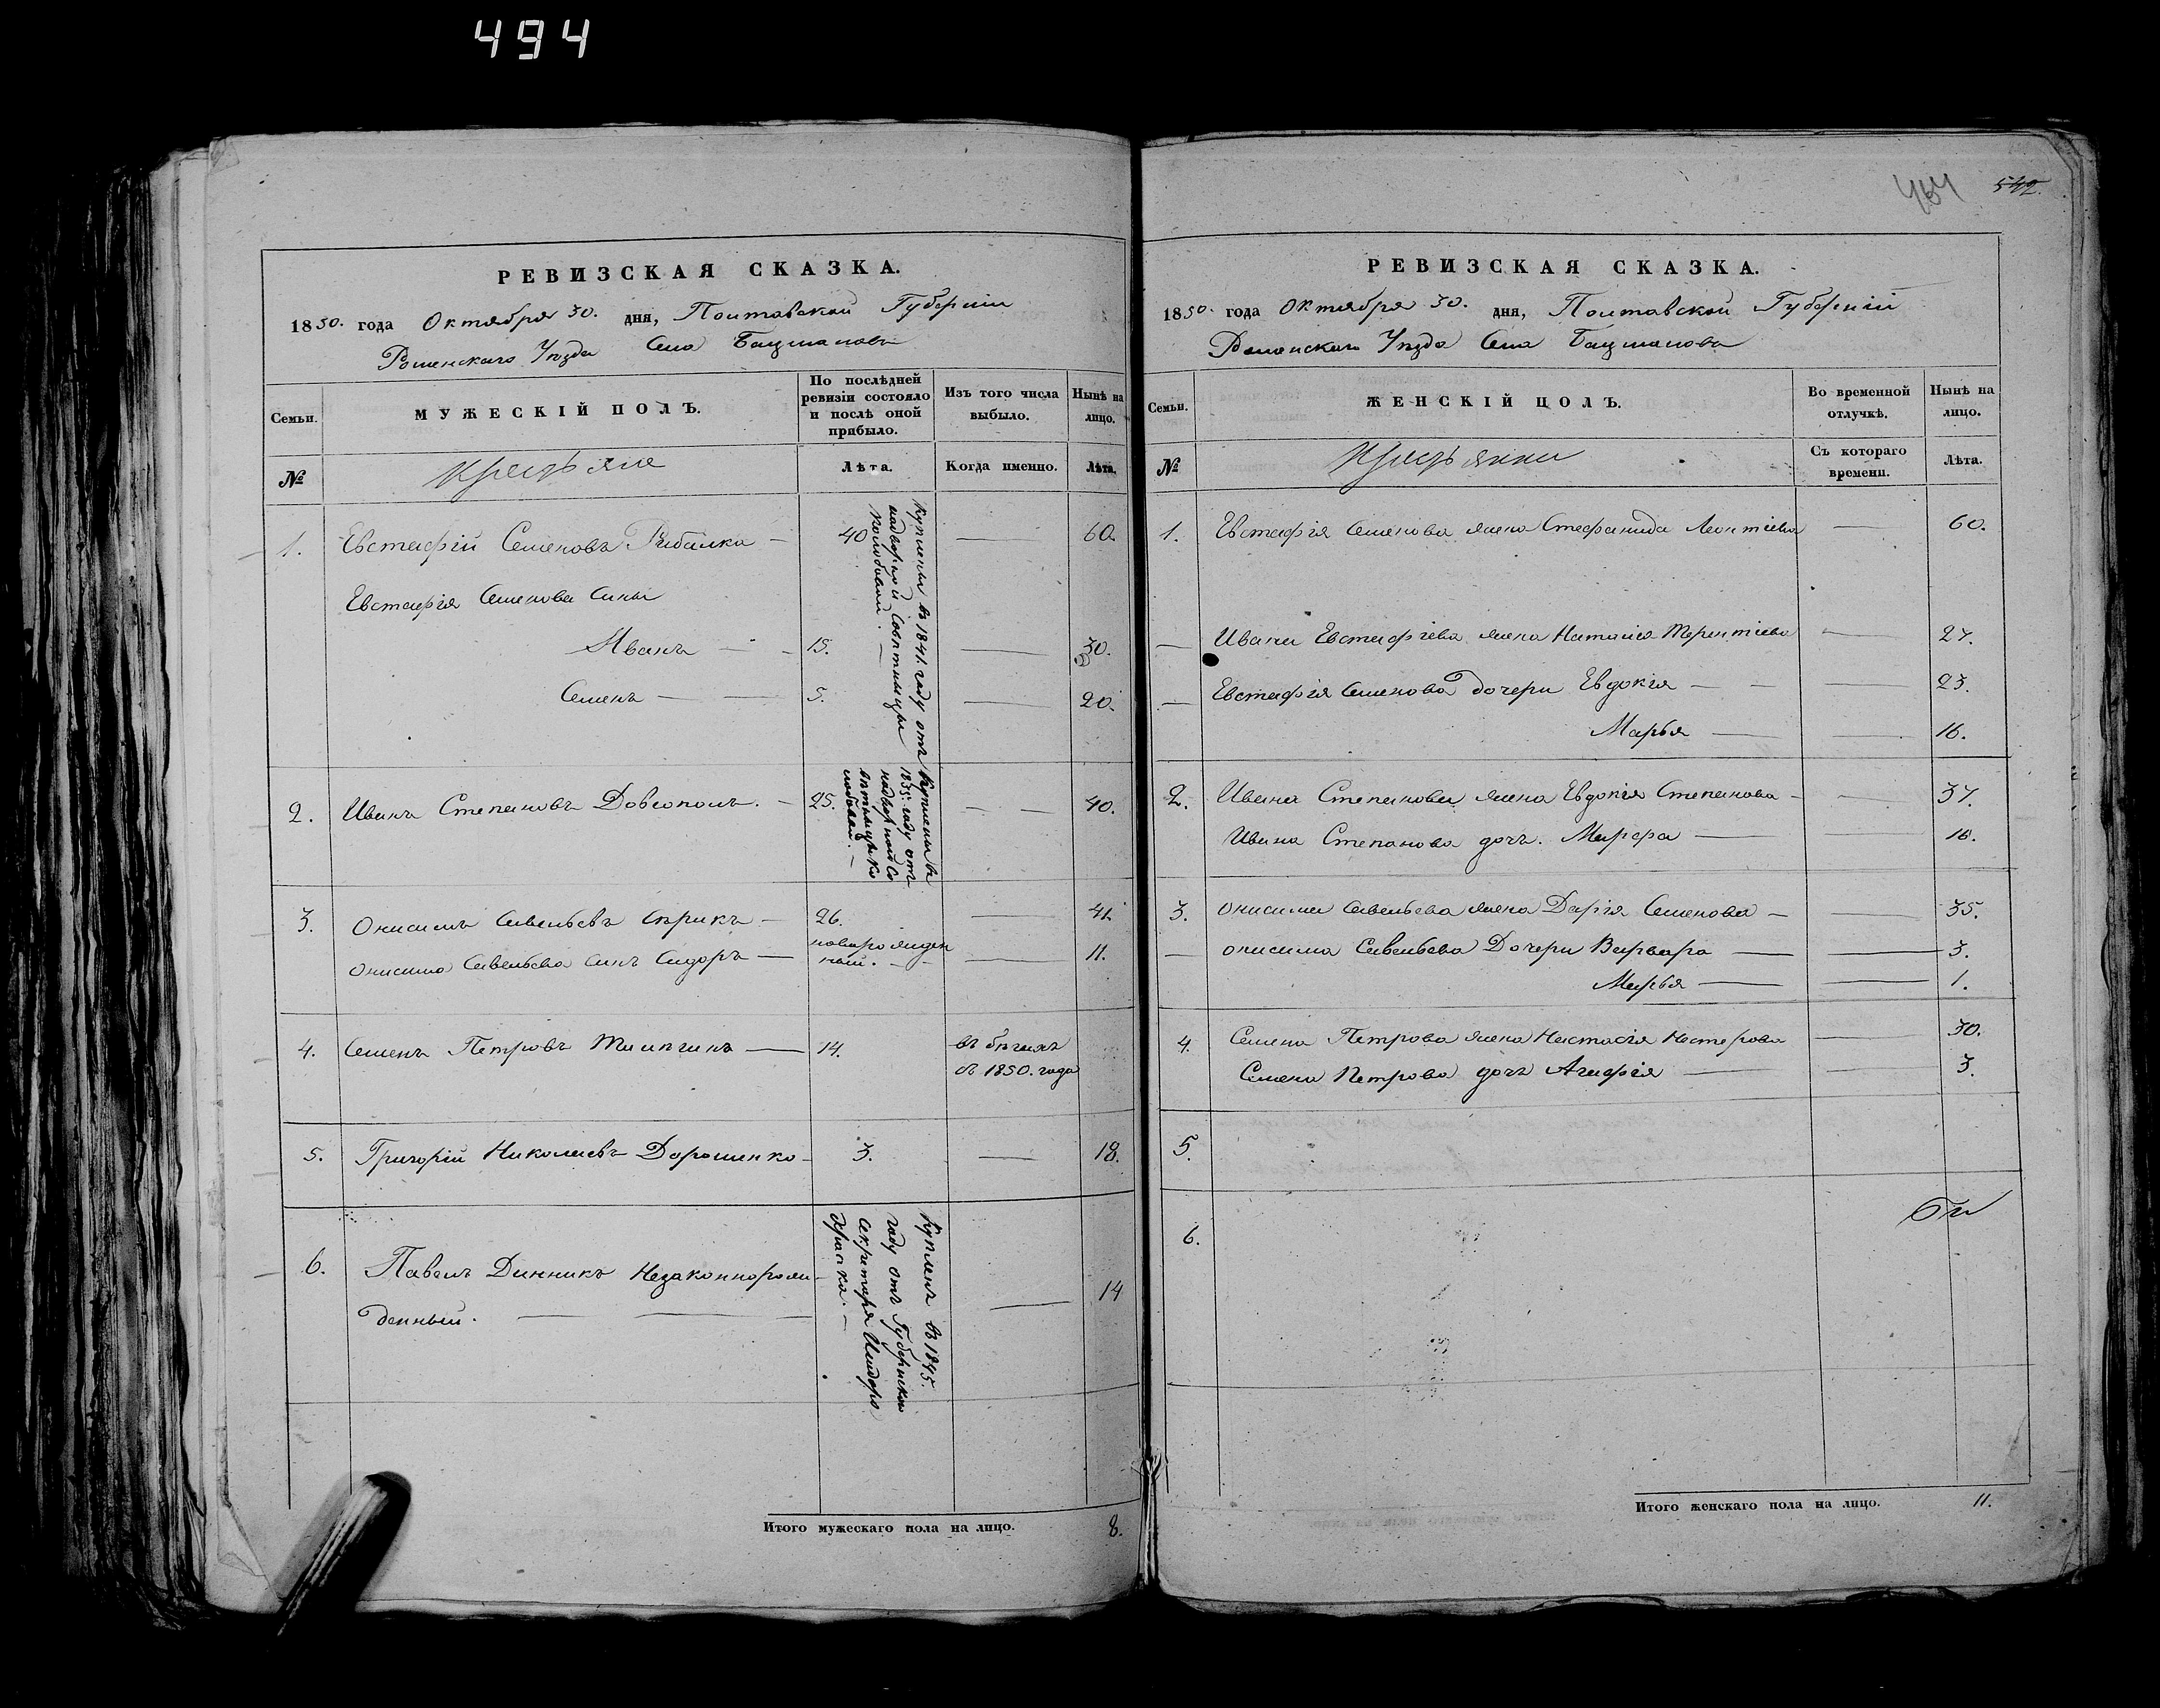 494
РЕВИЗСКАЯ СКАЗКА.
1850. года Октября 30. дня, Полтавской Губерніи
Роменскаго Уѣзда Села Бацманова
Семьи.
МУЖЕСКІЙ ПОЛЪ.
По послѣдней ревизіи состояло и послѣ оной прибыло.
Изъ того числа выбыло.
Нынѣ на лицо.
№
Крестьяне
Лѣта.
Когда именно.
Лѣта.
1. Евстафій Семеновъ Рибалка — 40 — 60.
Куплены въ 1841. году отъ
надворной Совѣтницы
Колобовой. —
Евстафія Семенова Сины
Иванъ — 15. — 30.
Семенъ — 5. — 20.
2. Иванъ Степановъ Довгополъ. — 25. — 40.
Куплены въ
1835. году отъ
надворной Со
вѣтницы Ко
лобовой. —
3. Онисимъ Савельевъ Сѣрикъ — 26. — 41.
Онисима Савельева синъ Сидоръ — новорожден
ный. — 11.
4. Семенъ Петровъ — 14. въ бѣгахъ
съ 1850. года
5. Григорій Николаевъ Дорошенко — 3. — 18.
6. Павелъ Динникъ Незаконнорож-
денный. — 14
Купленъ въ 1845.
году отъ Губернскаго
секретаря
Итого мужескаго пола на лицо. 8.
542.
РЕВИЗСКАЯ СКАЗКА.
1850. года Октября 30. дня, Полтавской Губерніи
Роменскаго Уѣзда Села Бацманова
Семьи.
ЖЕНСКІЙ ПОЛЪ.
Во временной отлучкѣ.
Нынѣ на лицо.
№
Крестьянки
Съ котораго времени.
Лѣта.
1. Евстафія Семенова жена Стефанида Леонтіева — 60.
— Ивана Евстафіева жена Наталія Терентіева — 27.
— Евстафія Семенова дочери Евдокія — 23.
Марья — 16.
2. Ивана Степанова жена Евдокія Степанова — 37.
Ивана Степанова дочь. Марфа — 16.
3. Онисима Савельева жена Дарія Семенова — 35.
— Онисима Савельева Дочери Варвара — 3.
Марья — 1.
4. Семена Петрова жена Настасія Нестерова — 30.
Семена Петрова дочь Агафія — 3.
5.
6.
Итого женскаго пола на лицо. 11.